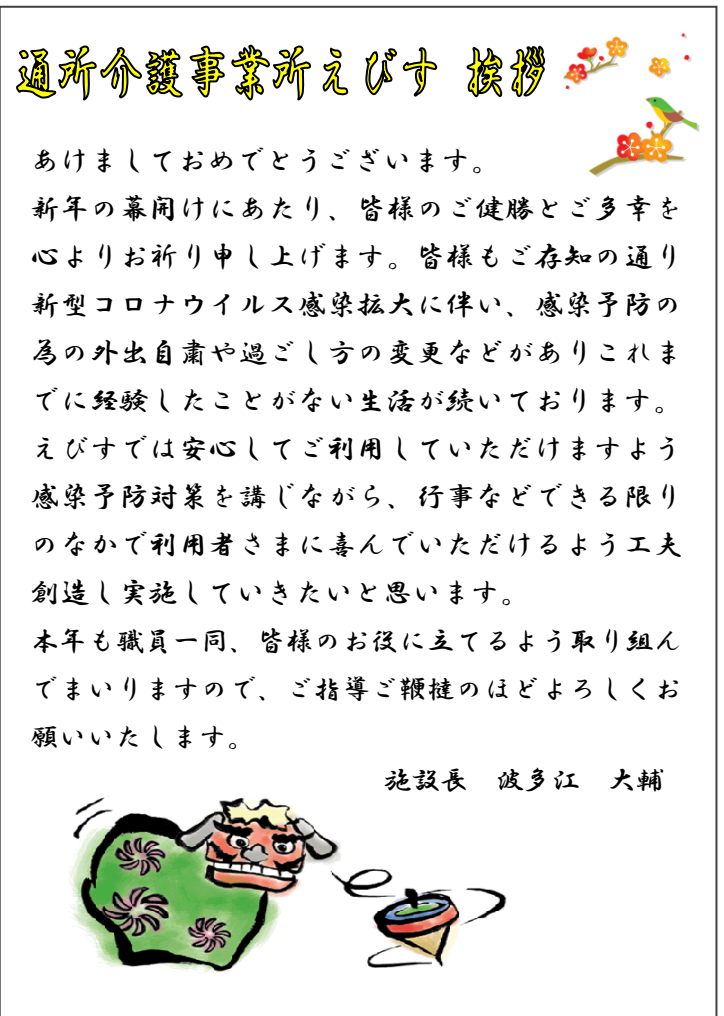 通所介護事業所えびす 挨拶
あけましておめでとうございます。
新年の幕開けにあたり、皆様のご健勝とご多幸を
心よりお祈り申し上げます。皆様もご存知の通り
新型コロナウイルス感染拡大に伴い、感染予防の
為の外出自粛や過ごし方の変更などがありこれま
でに経験したことがない生活が続いております。
えびすでは安心してご利用していただけますよう
感染予防対策を講じながら、行事などできる限り
のなかで利用者さまに喜んでいただけるよう工夫
創造し実施していきたいと思います。
本年も職員一同、皆様のお役に立てるよう取り組ん
でまいりますので、ご指導ご鞭撻のほどよろしくお
願いいたします。
施設長　波多江　大輔